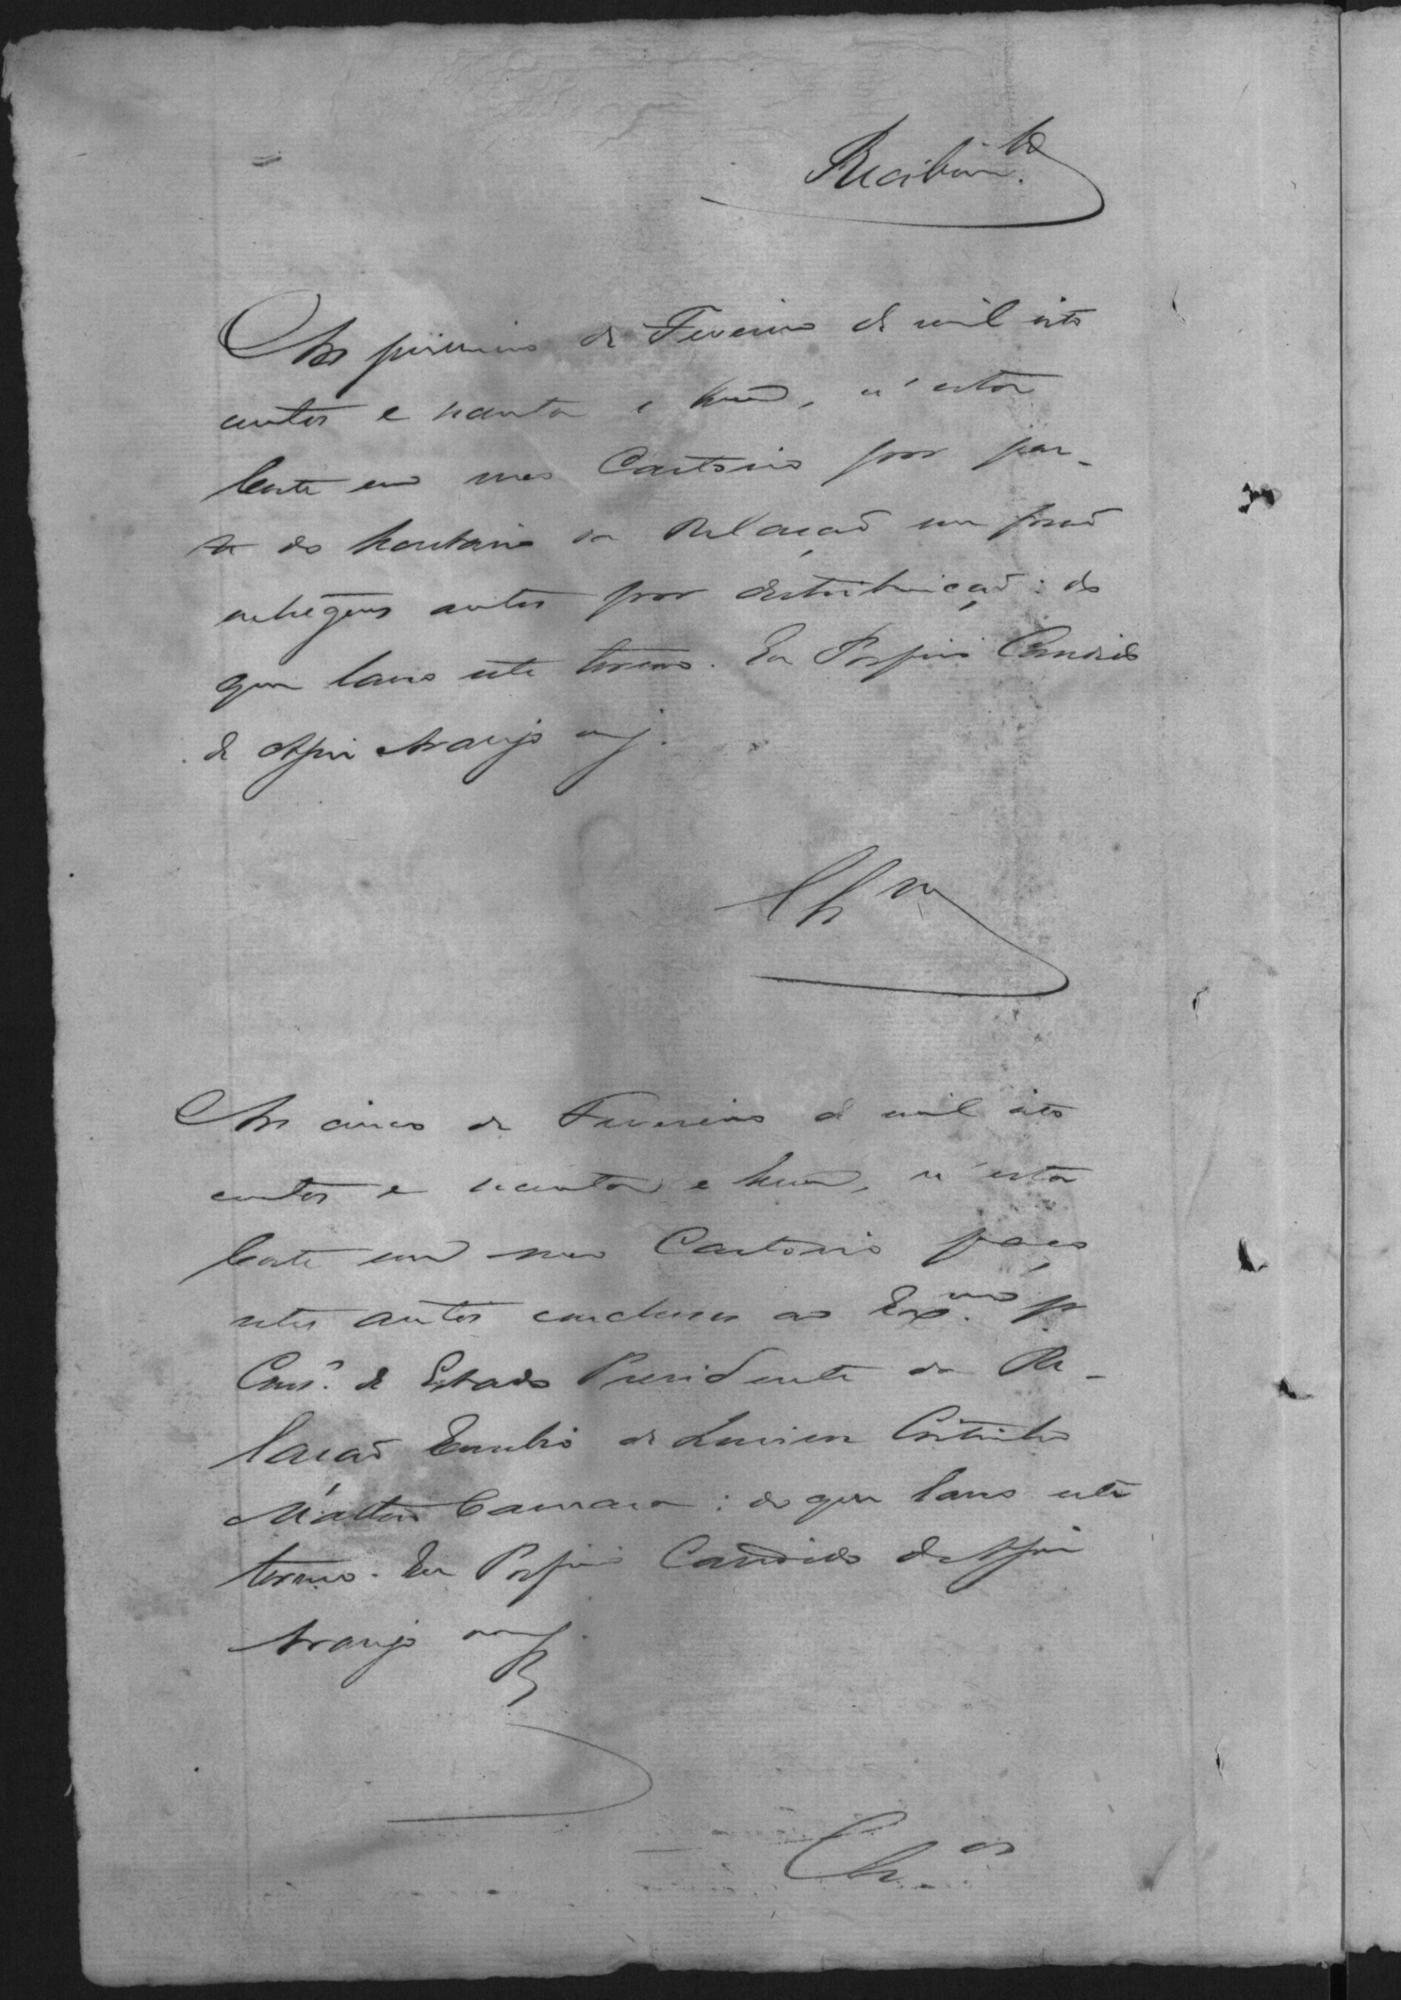 Recebim.to
Aos primeiro de Fevereiro de mil oito
centos e secenta e hum, n'esta
Corte em meo Cartorio por par-
te do Secretario da Relação me forão
entregues autos por distribuição: do
que lavro este termo. Eu Porfirio Candido
de Assis Araujo
Aos cinco de Fevereiro de mil oito
centos e secenta e hum, n'esta
Corte em meo Cartorio faço
estes autos conclusos ao Ex.mo Sr.
Cons.o de Estado Presidente da Re-
lação Euzebio de Queiroz Coitinho
Mattoso Camara: do que lavro este
termo. Eu Porfirio Candido de Assis
Araujo